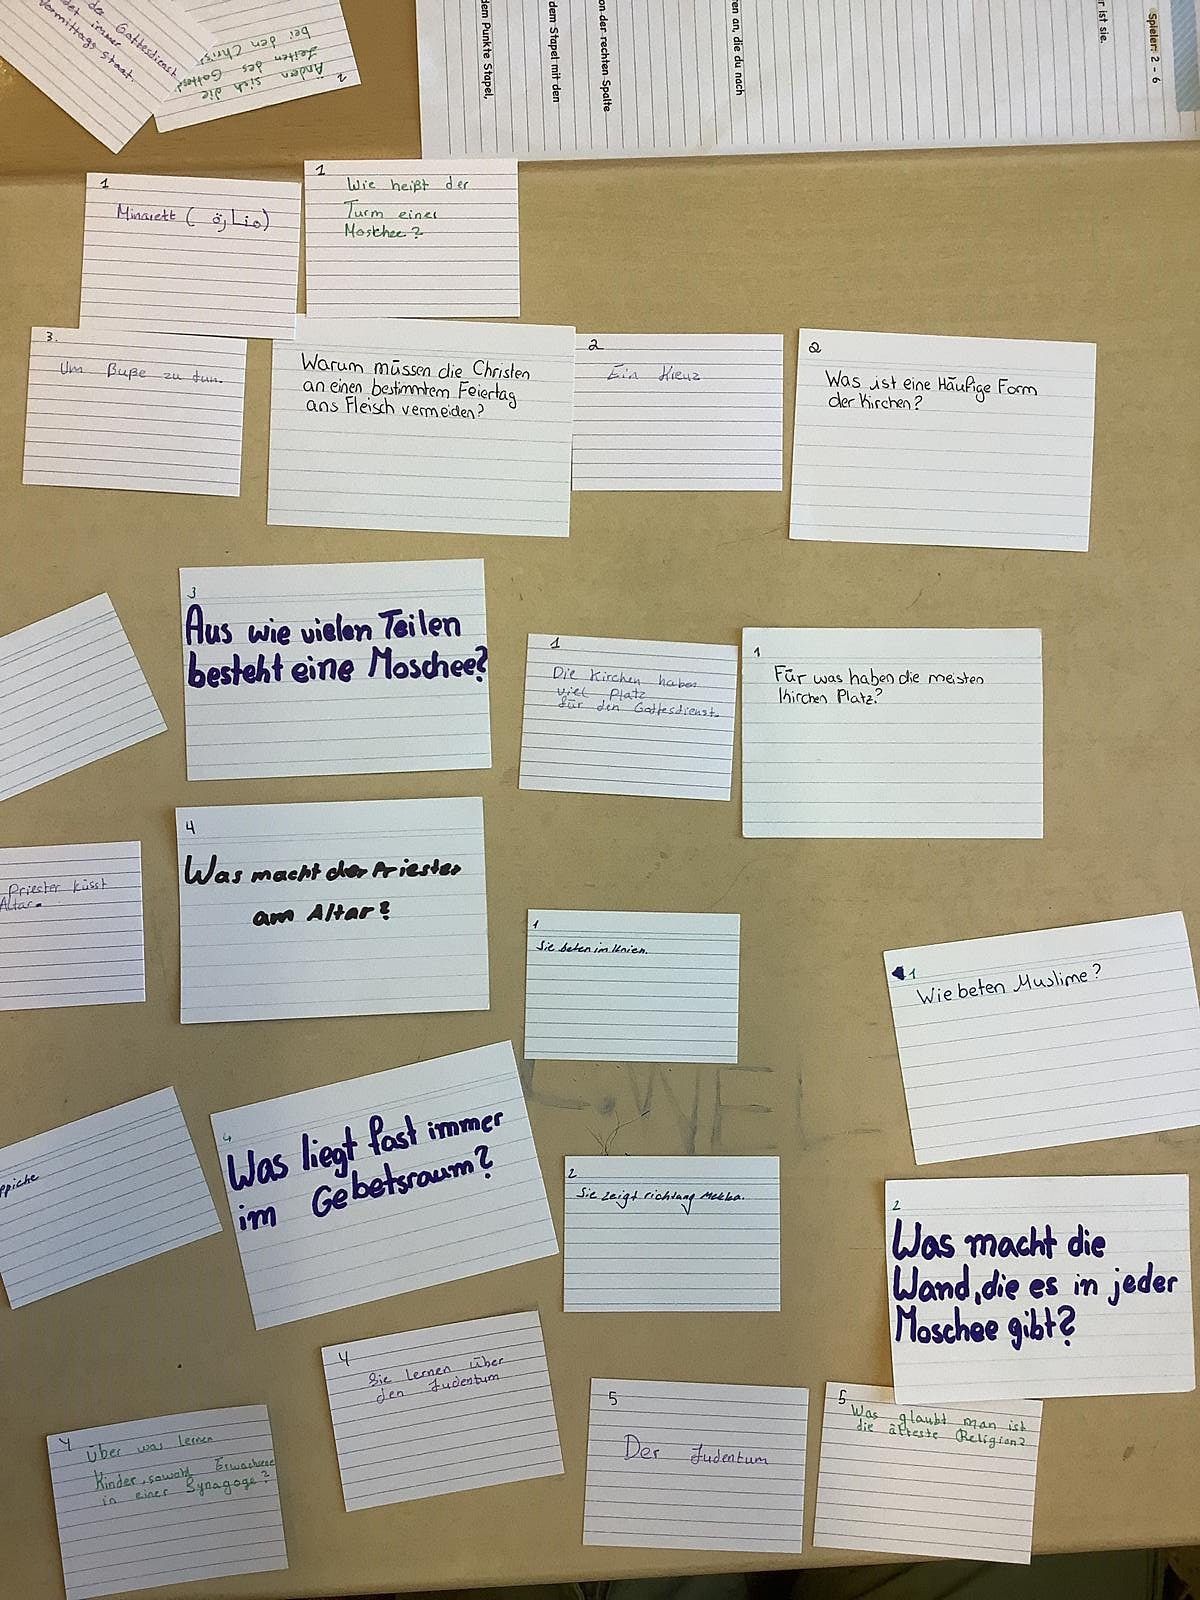 der Gottesdienst
det immer
Vormittags statt.
2
Änden sich die
Zeiten des
bei den
dem Punkte Stapel,
dem Stapel mit den
on der rechten Spalte
ren an, die du nach
r ist sie.
Spieler: 2 - 6
1
Minarett (منارة)
1
Wie heißt der
Turm einer
Moschee?
3.
Um Buße zu tun.
Warum müssen die Christen
an einen bestimmtem Feiertag
ans Fleisch vermeiden?
2
Ein Kreuz
2
Was ist eine Häufige Form
der Kirchen?
3
Aus wie vielen Teilen
besteht eine Moschee?
1
Die Kirchen haben
viel Platz
für den Gottesdienst.
1
Für was haben die meisten
Kirchen Platz?
Priester küsst
Altar.
4
Was macht der Priester
am Altar?
1
Sie beten im Knien.
1
Wie beten Muslime?
ppiche
4
Was liegt fast immer
im Gebetsraum?
2
Sie zeigt richtung Mekka.
2
Was macht die
Wand, die es in jeder
Moschee gibt?
4
Über was lernen
Kinder, sowohl Erwachsene
in einer Synagoge?
4
Sie lernen über
den Judentum
5
Der Judentum
5
Was glaubt man ist
die älteste Religion?